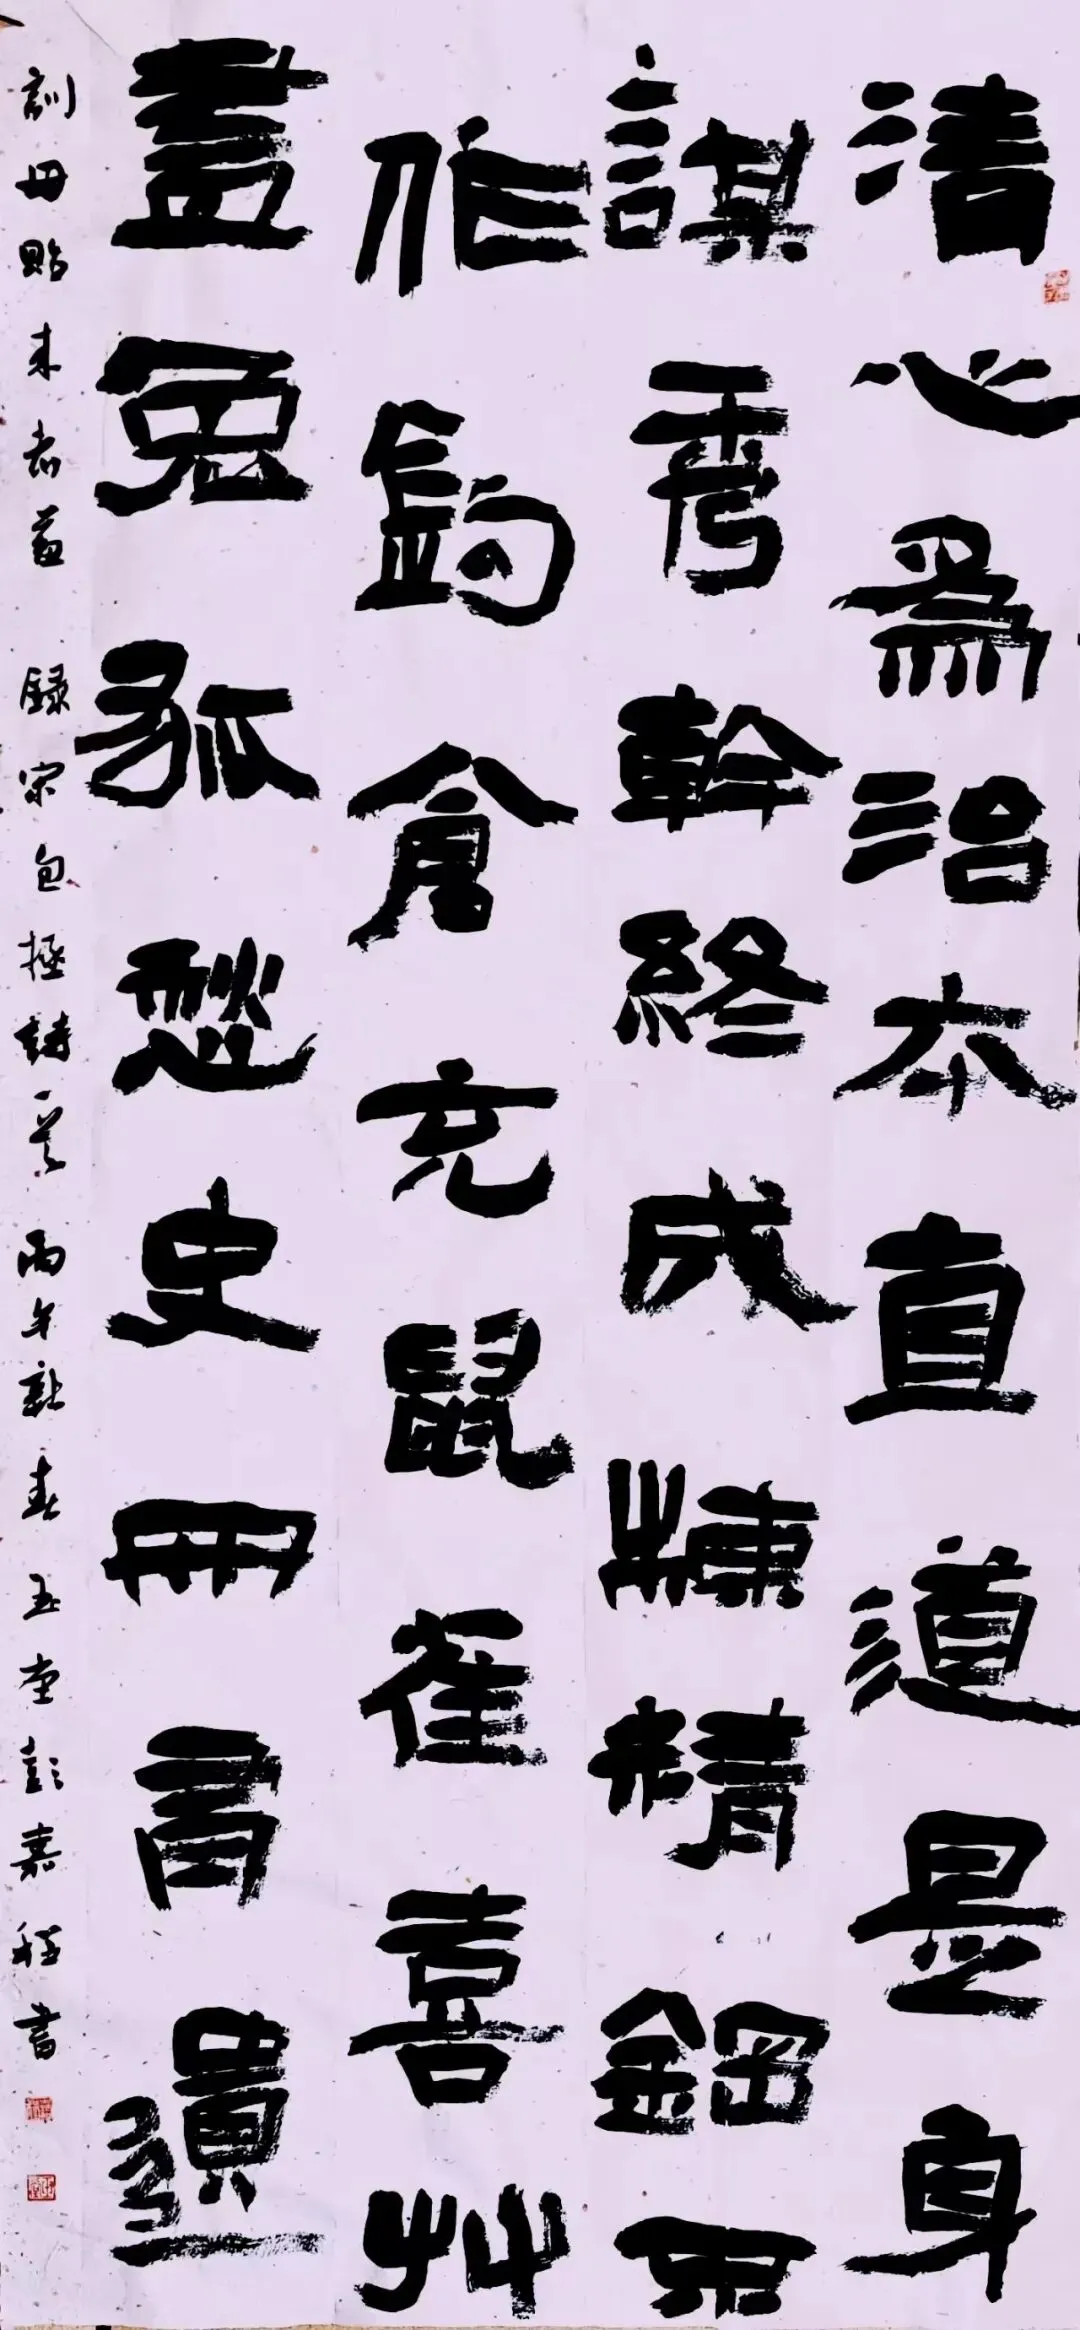 清心為治本直道是身
謀秀幹終成棟精鋼不
作鈎倉充鼠雀喜艸
盡兔狐愁史冊有遺
訓毋貽來者羞 錄宋包拯詩一首 丙午新春 玉堂彭嘉程書